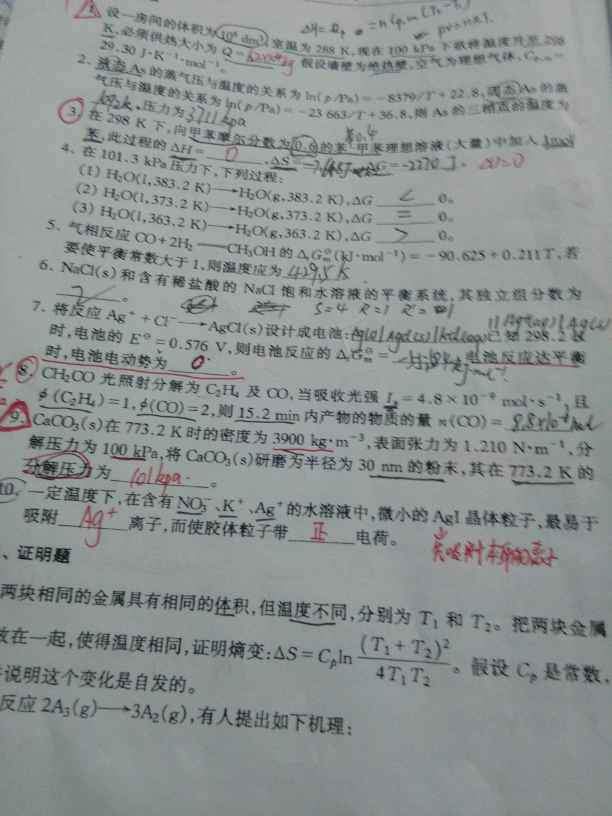 1. 设一房间的体积为10⁶ dm³, 室温为 288 K, 现在 100 kPa 下欲将温度升至 298
K, 必须供热大小为 Q= 。假设墙壁为绝热壁, 空气为理想气体,
29.30 J·K⁻¹·mol⁻¹。
2. 液态 As 的蒸气压与温度的关系为 ln(p/Pa)=−8379/T+22.8, 固态 As 的蒸
气压与温度的关系为 ln(p/Pa)=−23 663/T+36.8, 则 As 的三相点的温度为
, 压力为3711kpa
3. 在 298 K 下, 向甲苯摩尔分数为0.6的苯-甲苯理想溶液(大量)中加入 1mol
苯, 此过程的 ΔH= 0 , ΔS= ΔG=−2270 J。 ΔU=0
4. 在 101.3 kPa 压力下, 下列过程:
(1) H₂O(l,383.2 K)⟶H₂O(g,383.2 K),ΔG < 0。
(2) H₂O(l,373.2 K)⟶H₂O(g,373.2 K),ΔG = 0。
(3) H₂O(l,363.2 K)⟶H₂O(g,363.2 K),ΔG > 0。
5. 气相反应 CO+2H₂ ⟶CH₃OH 的 ΔᵣG⊖ₘ(kJ·mol⁻¹)=−90.625+0.211T, 若
要使平衡常数大于 1, 则温度应为 429.5 K
6. NaCl(s) 和含有稀盐酸的 NaCl 饱和水溶液的平衡系统, 其独立组分数为
。 S=4 R=1
7. 将反应 Ag⁺+Cl⁻⟶AgCl(s) 设计成电池: 已知 298.2 K
时, 电池的 E⊖=0.576 V, 则电池反应的 ΔᵣG⊖ₘ= 电池反应达平衡
时, 电池电动势为 0 。
8. CH₂CO 光照射分解为 C₂H₄ 及 CO, 当吸收光强 Iₐ=4.8×10⁻⁹ mol·s⁻¹, 且
φ(C₂H₄)=1, φ(CO)=2, 则 15.2 min 内产物的物质的量 n(CO)=
9. CaCO₃(s) 在 773.2 K 时的密度为 3900 kg·m⁻³, 表面张力为 1.210 N·m⁻¹, 分
解压力为 100 kPa, 将 CaCO₃(s) 研磨为半径为 30 nm 的粉末, 其在 773.2 K 的
分解压力为 101kpa 。
10. 一定温度下, 在含有 NO₃⁻、K⁺、Ag⁺的水溶液中, 微小的 AgI 晶体粒子, 最易于
吸附 Ag⁺ 离子, 而使胶体粒子带 正 电荷。
、证明题
两块相同的金属具有相同的体积, 但温度不同, 分别为 T₁ 和 T₂。把两块金属
放在一起, 使得温度相同, 证明熵变:ΔS=Cₚln (T₁+T₂)²/4T₁T₂。假设 Cₚ 是常数,
说明这个变化是自发的。
反应 2A₃(g)⟶3A₂(g), 有人提出如下机理: